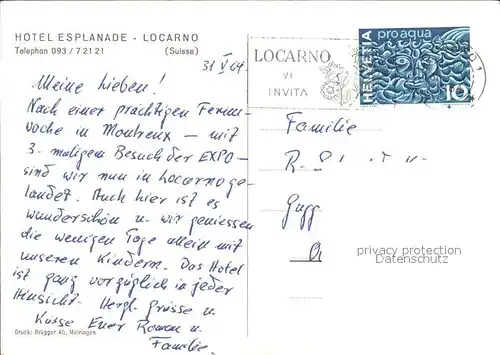 HOTEL ESPLANADE - LOCARNO
Telephon 093 / 7 21 21 (Suisse)
31 V 64.
Meine Lieben!
Nach einer prächtigen Ferien-
woche in Montreux – mit
3-maligem Besuch der EXPO –
sind wir nun in Locarno ge-
landet. Auch hier ist es
wunderschön u. wir geniessen
die wenigen Tage allein mit
unseren Kindern. Das Hotel
ist ganz vorzüglich in jeder
Hinsicht. Herzl. Grüsse u.
Küsse Euer Roman u.
Familie.
Druck: Brügger AG, Meiringen
LOCARNO
VI
INVITA
HELVETIA
pro aqua
10
Familie
privacy protection
Datenschutz